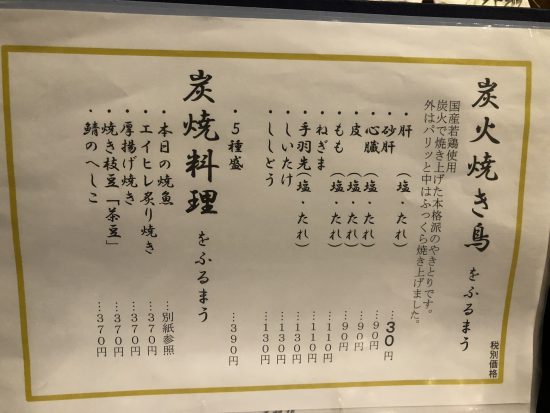 炭火焼き鳥 をふるまう
税別価格
国産若鶏使用
炭火で焼き上げた本格派のやきとりです。
外はパリッと中はふっくら焼き上げました。
・肝 (塩・たれ) …30円
・砂肝 …90円
・心臓 (塩・たれ) …90円
・皮 (塩・たれ) …90円
・もも (塩・たれ) …110円
・ねぎま …110円
・手羽先(塩・たれ) …130円
・しいたけ …130円
・ししとう …130円
・5種盛 …390円
炭焼料理 をふるまう
・本日の焼魚 …別紙参照
・エイヒレ炙り焼き …370円
・厚揚げ焼き …370円
・焼き枝豆「茶豆」 …370円
・鯖のへしこ …370円